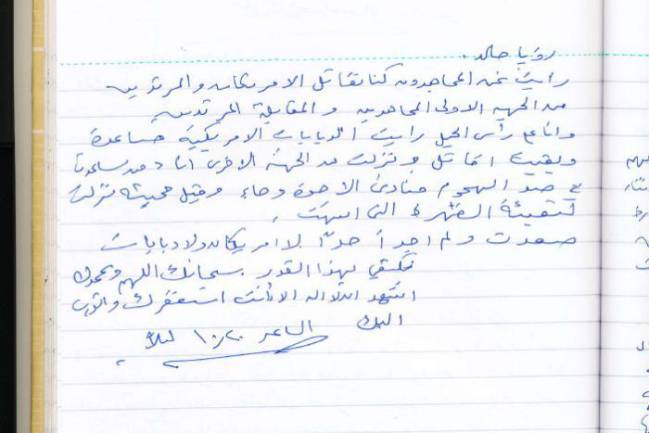 رؤيا خالد.
رأيت نحن المجاهدون كنا نقاتل الامريكان والمرتدين
من الجهه الاولى المجاهدين والمقابلة المرتدين
وانا على رأس الجبل رأيت الدبابات الامريكية صاعدة
وبقيت اقاتل ونزلت من الجهة الاخرى
في صد الهجوم فنادى الاخوة وجاء وقبل مجيئه نزلت
لتعبئة التي انتهت.
صعدت ولم اجد احداً لا امريكان ولا دبابات
نكتفي بهذا القدر سبحانك اللهم وبحمدك
اشهد ان لا اله الا أنت استغفرك واتوب
اليك الساعه ١٠،٢٠ ليلاً